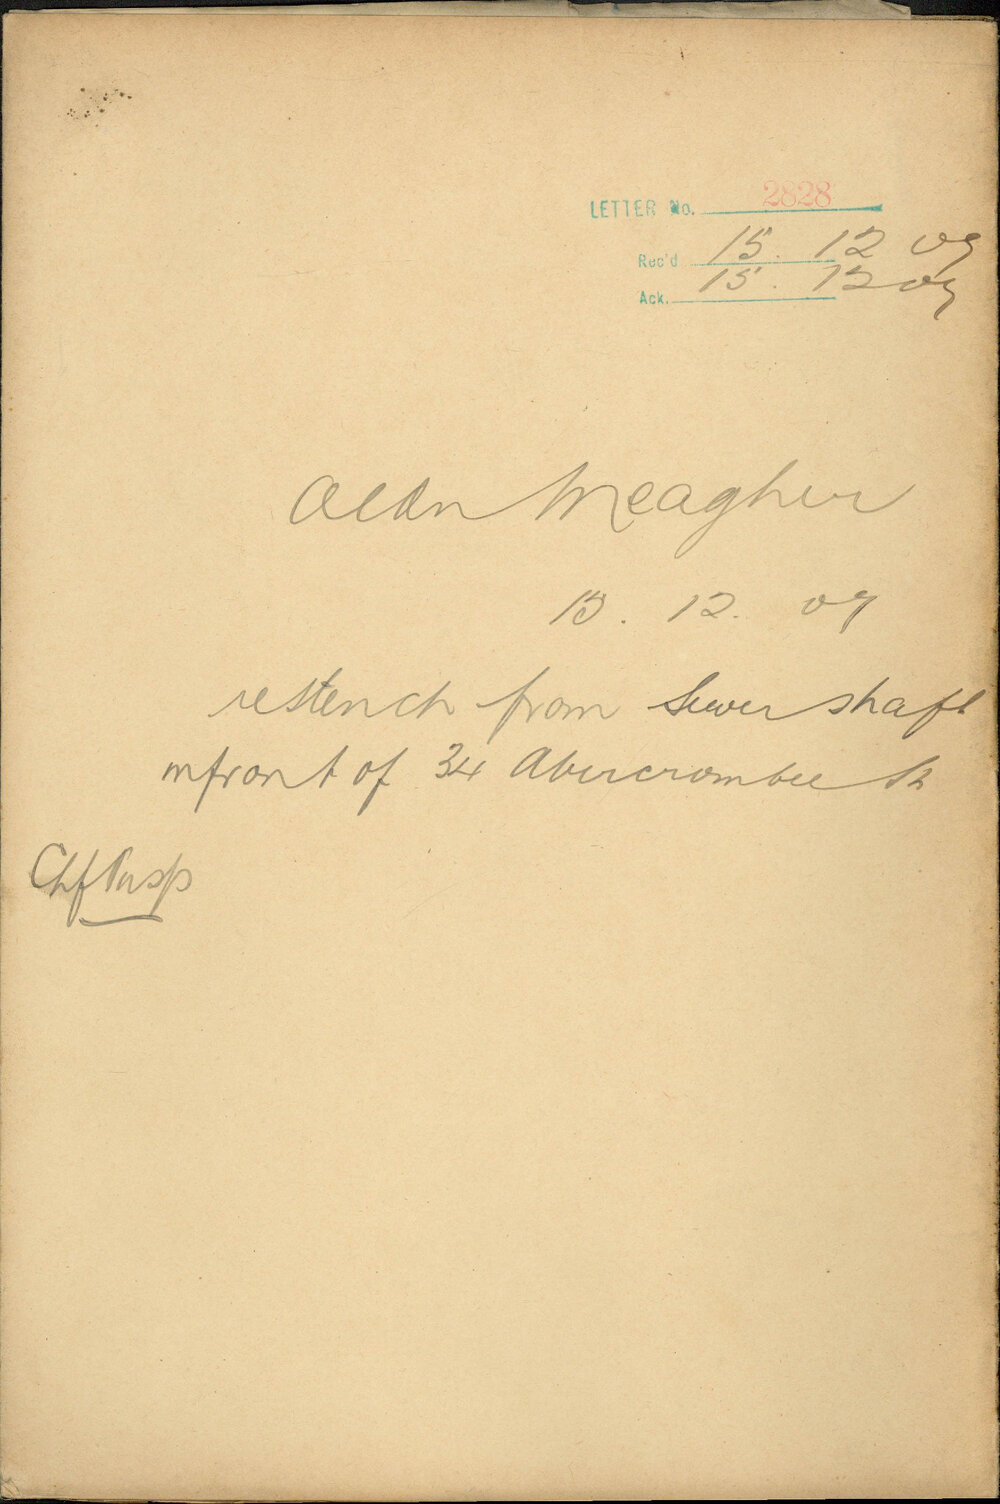 LETTER No. 2828
Rec'd 15. 12 09
Ack. 15. 12 09
Aldn Meagher
15. 12. 09
re stench from Sewer shaft
infront of 34 Abercrombee St
Chf Insp